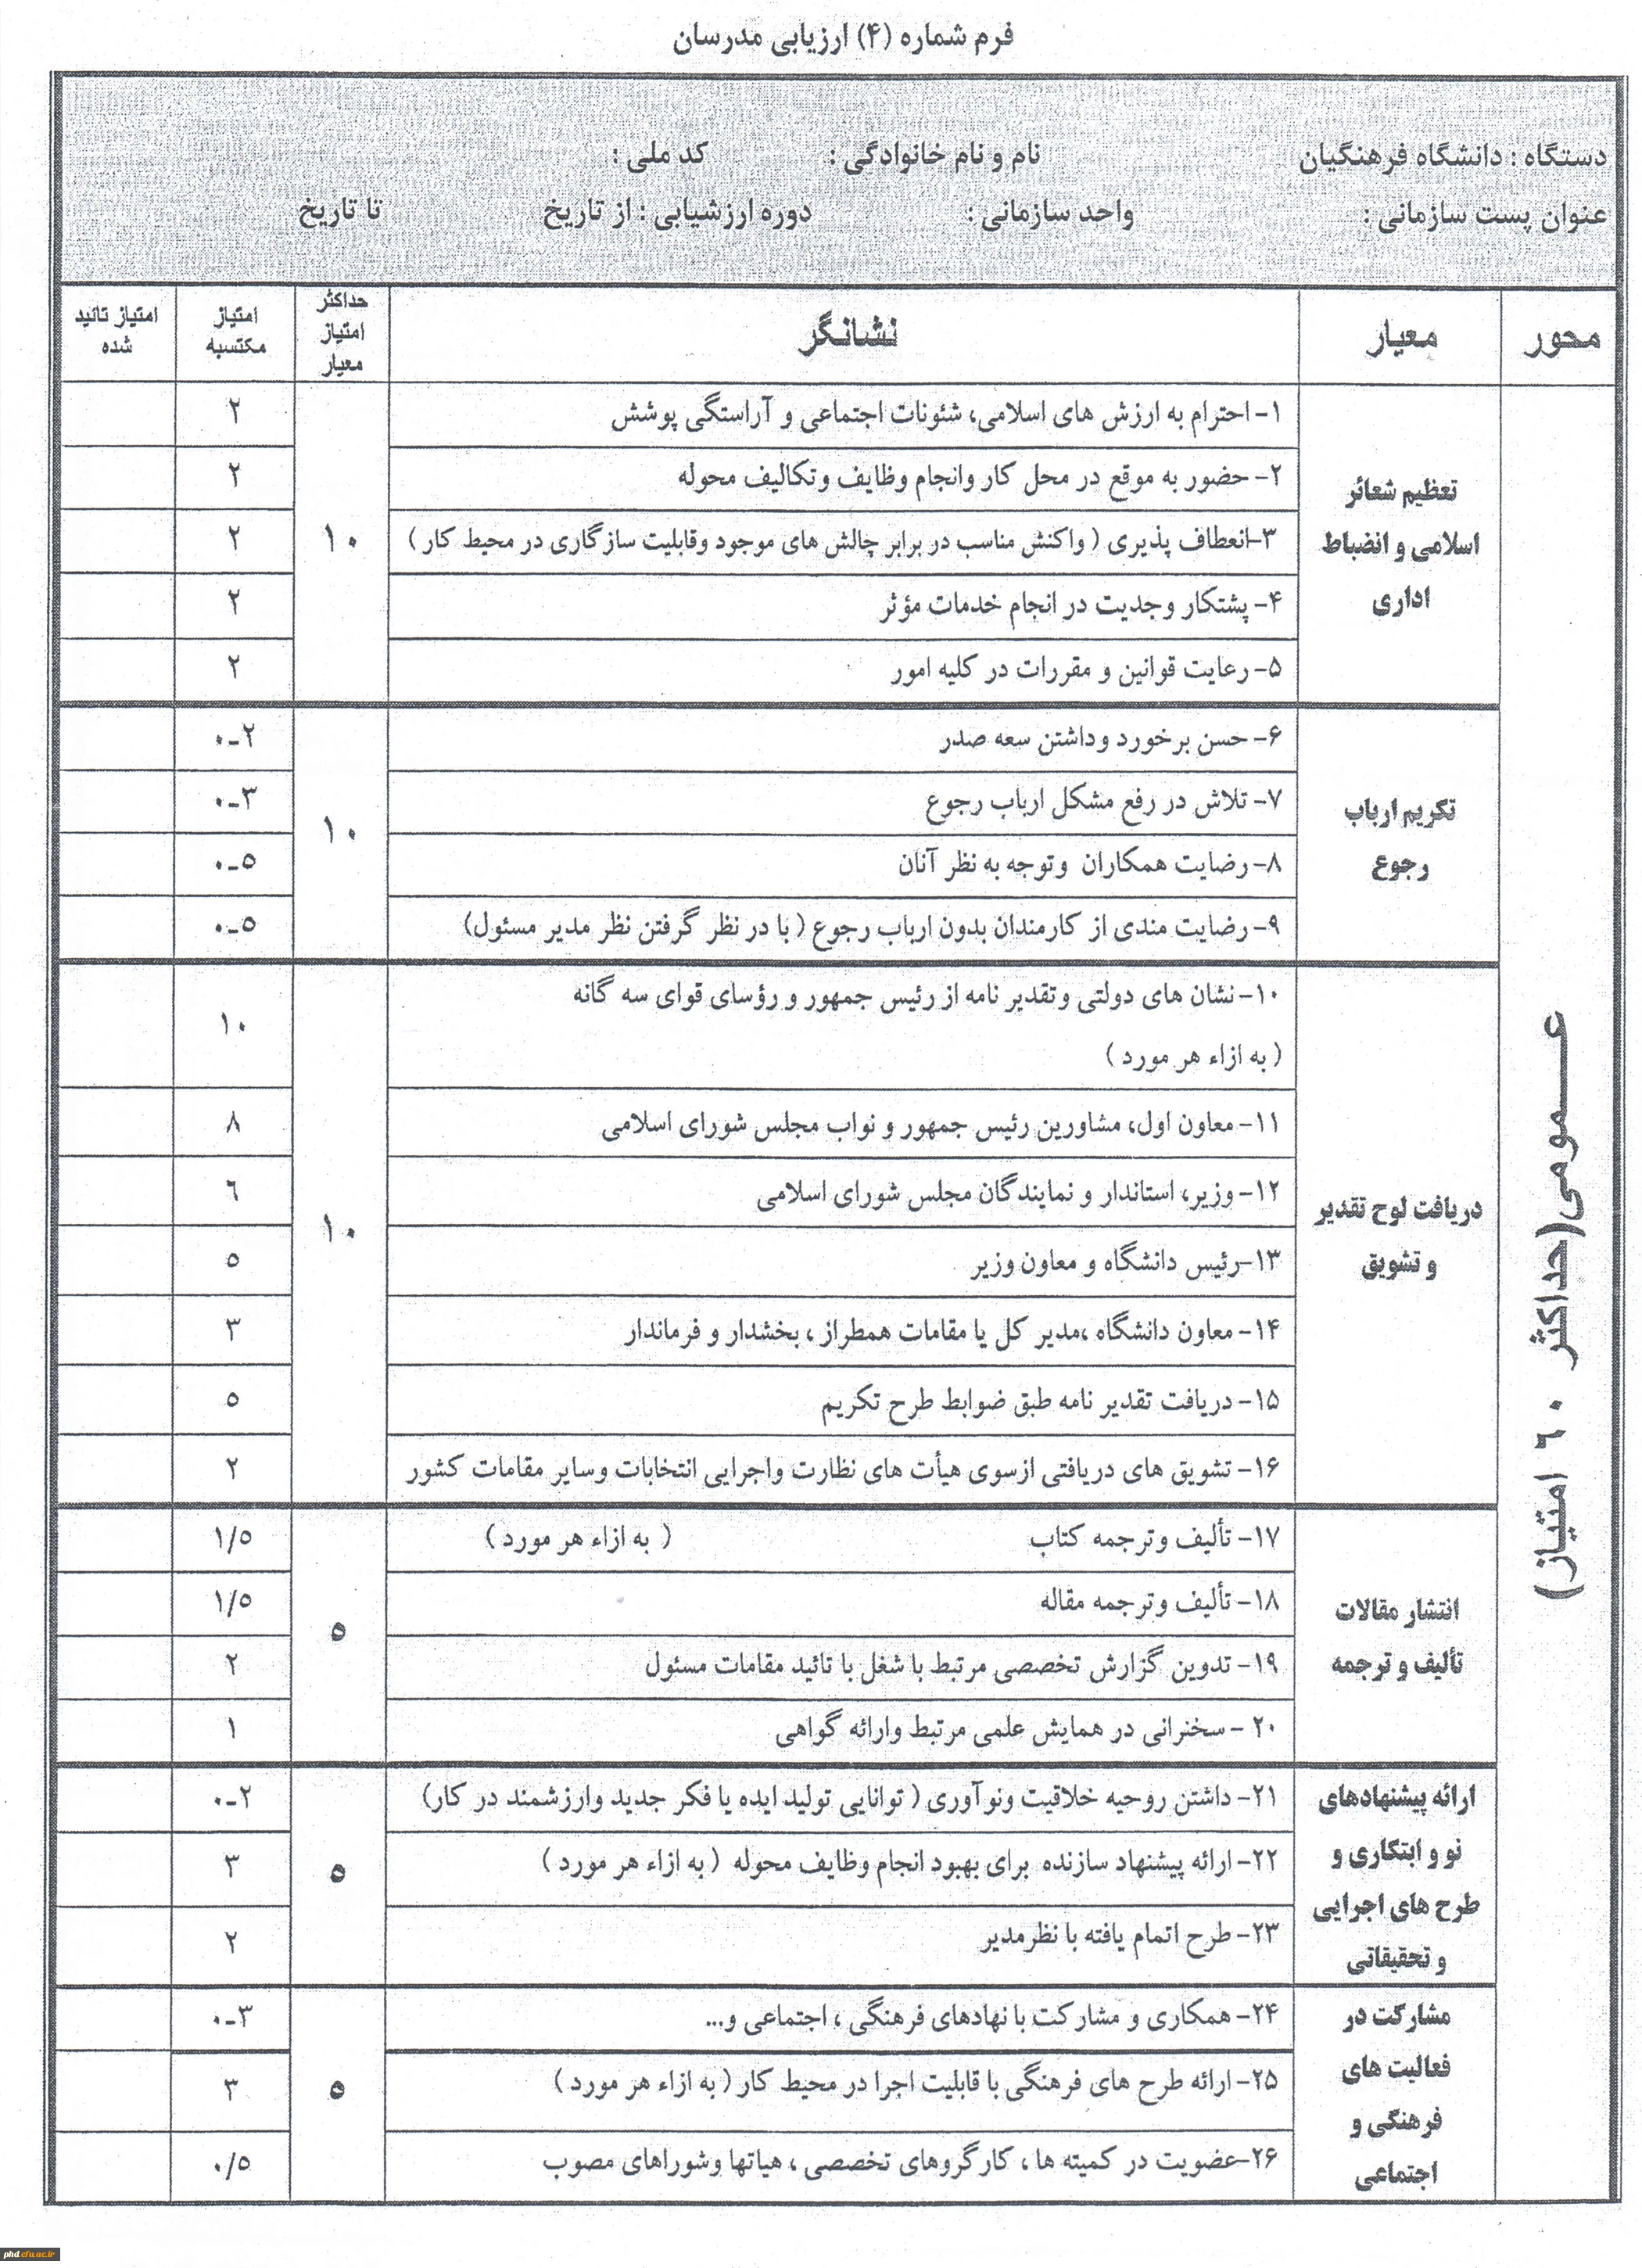 فرم شماره (۴) ارزیابی مدرسان
دستگاه : دانشگاه فرهنگیان نام و نام خانوادگی : کد ملی :
عنوان پست سازمانی : واحد سازمانی : دوره ارزشیابی : از تاریخ تا تاریخ
محور معیار نشانگر حداکثر امتیاز معیار امتیاز مکتسبه امتیاز تائید شده
عـــمومی(حداکثر ۶۰ امتیاز)
تعظیم شعائر
اسلامی و انضباط
اداری
۱۰
۱- احترام به ارزش های اسلامی، شئونات اجتماعی و آراستگی پوشش ۲
۲- حضور به موقع در محل کار وانجام وظایف وتکالیف محوله ۲
۳-انعطاف پذیری ( واکنش مناسب در برابر چالش های موجود وقابلیت سازگاری در محیط کار ) ۲
۴- پشتکار وجدیت در انجام خدمات مؤثر ۲
۵- رعایت قوانین و مقررات در کلیه امور ۲
تکریم ارباب
رجوع
۱۰
۶- حسن برخورد وداشتن سعه صدر ۲-۰
۷- تلاش در رفع مشکل ارباب رجوع ۳-۰
۸- رضایت همکاران وتوجه به نظر آنان ۵-۰
۹- رضایت مندی از کارمندان بدون ارباب رجوع ( با در نظر گرفتن نظر مدیر مسئول) ۵-۰
دریافت لوح تقدیر
و تشویق
۱۰
۱۰- نشان های دولتی وتقدیر نامه از رئیس جمهور و رؤسای قوای سه گانه
( به ازاء هر مورد ) ۱۰
۱۱- معاون اول، مشاورین رئیس جمهور و نواب مجلس شورای اسلامی ۸
۱۲- وزیر، استاندار و نمایندگان مجلس شورای اسلامی ۶
۱۳-رئیس دانشگاه و معاون وزیر ۵
۱۴- معاون دانشگاه ،مدیر کل یا مقامات همطراز ، بخشدار و فرماندار ۳
۱۵- دریافت تقدیر نامه طبق ضوابط طرح تکریم ۵
۱۶- تشویق های دریافتی ازسوی هیأت های نظارت واجرایی انتخابات وسایر مقامات کشور ۲
انتشار مقالات
تألیف و ترجمه
۵
۱۷- تألیف وترجمه کتاب ( به ازاء هر مورد ) ۱/۵
۱۸- تألیف وترجمه مقاله ۱/۵
۱۹- تدوین گزارش تخصصی مرتبط با شغل با تائید مقامات مسئول ۲
۲۰ - سخنرانی در همایش علمی مرتبط وارائه گواهی ۱
ارائه پیشنهادهای
نو و ابتکاری و
طرح های اجرایی
و تحقیقاتی
۵
۲۱- داشتن روحیه خلاقیت ونوآوری ( توانایی تولید ایده یا فکر جدید وارزشمند در کار) ۲-۰
۲۲- ارائه پیشنهاد سازنده برای بهبود انجام وظایف محوله ( به ازاء هر مورد ) ۳
۲۳- طرح اتمام یافته با نظرمدیر ۲
مشارکت در
فعالیت های
فرهنگی و
اجتماعی
۵
۲۴- همکاری و مشارکت با نهادهای فرهنگی ، اجتماعی و... ۳-۰
۲۵- ارائه طرح های فرهنگی با قابلیت اجرا در محیط کار ( به ازاء هر مورد ) ۳
۲۶-عضویت در کمیته ها ، کارگروهای تخصصی ، هیاتها وشوراهای مصوب ۰/۵
phd.cfu.ac.ir